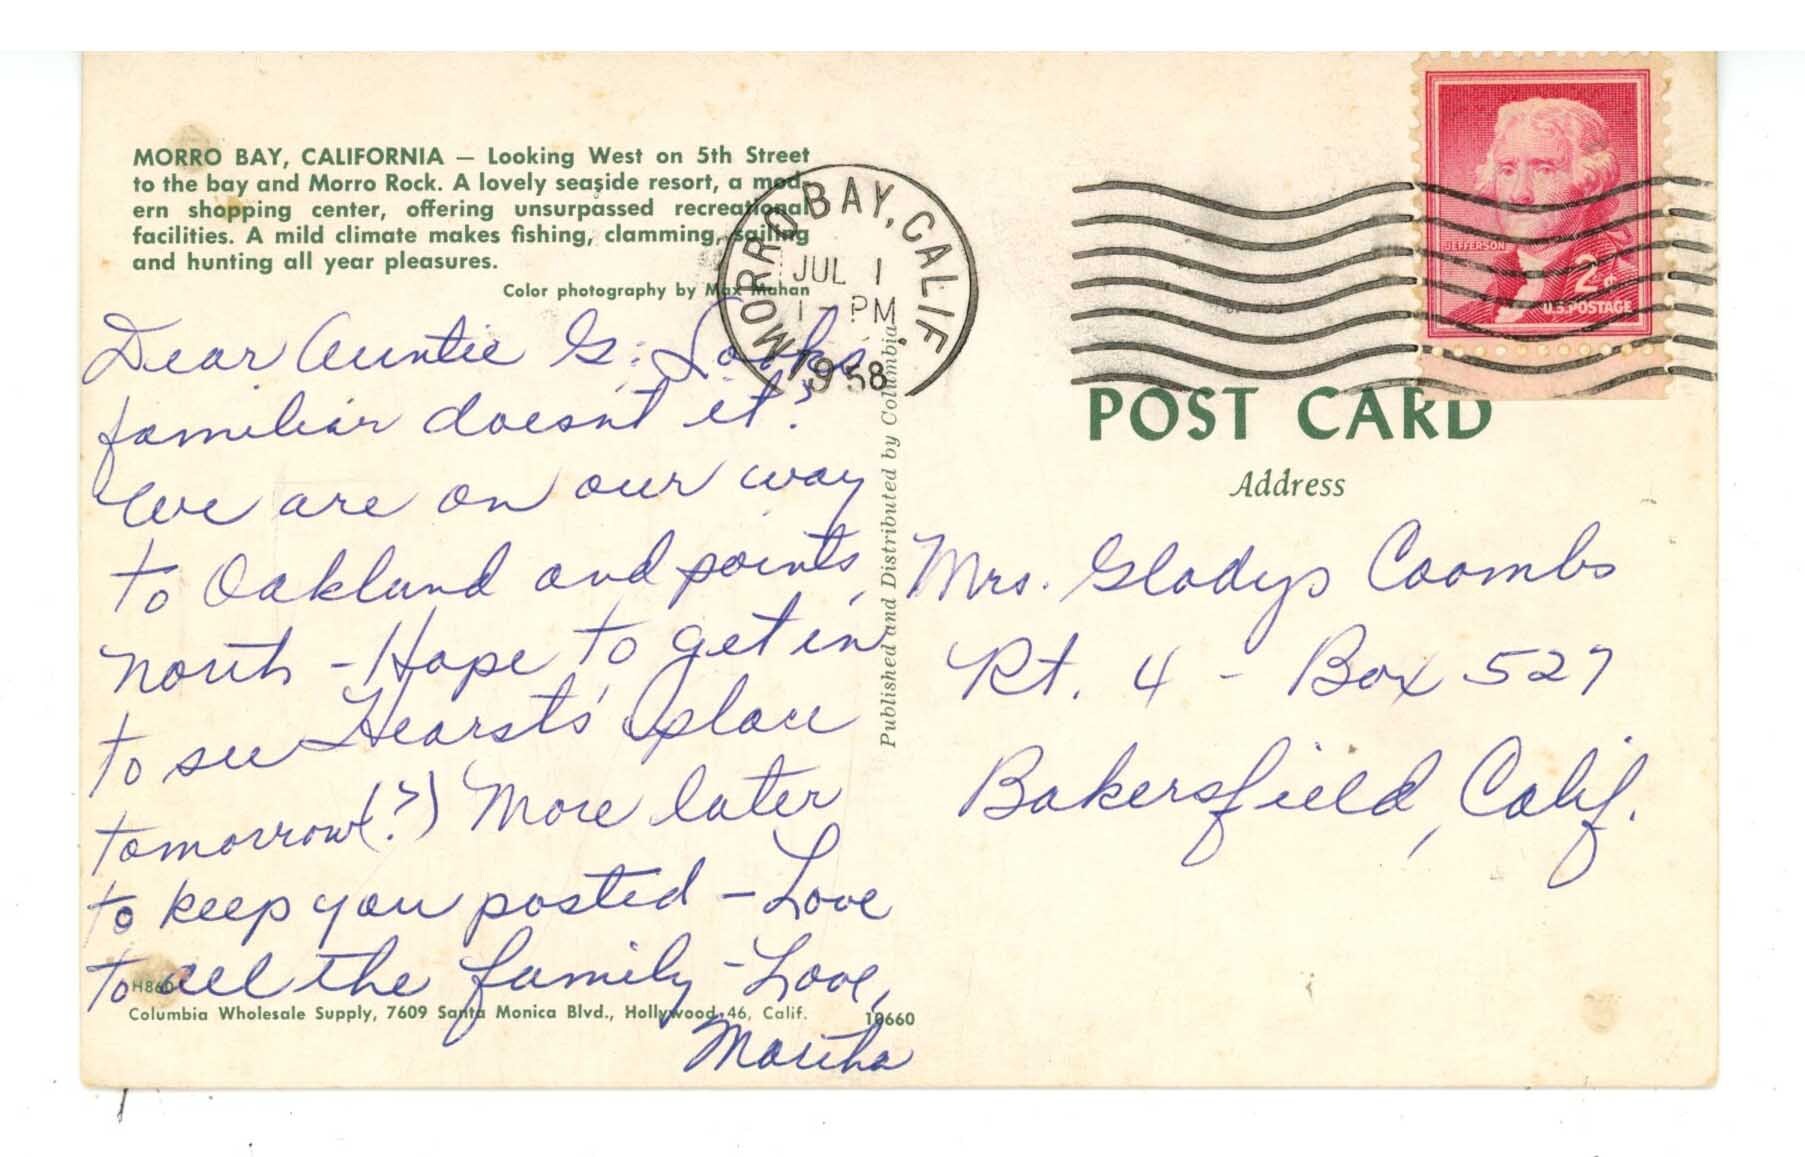 MORRO BAY, CALIFORNIA — Looking West on 5th Street
to the bay and Morro Rock. A lovely seaside resort, a mod-
ern shopping center, offering unsurpassed recreational
facilities. A mild climate makes fishing, clamming, sailing
and hunting all year pleasures.
Color photography by Max Mahan
Dear Auntie G: Looks
familiar doesn't it?
We are on our way
to Oakland and points
north - Hope to get in
to see Hearst's place
tomorrow(?) More later
to keep you posted - Love
to all the family - Love,
Martha
H860
Columbia Wholesale Supply, 7609 Santa Monica Blvd., Hollywood 46, Calif.
10660
Published and Distributed by Columbia
MORRO BAY, CALIF.
JUL 1
PM
1958
JEFFERSON
2¢
U.S. POSTAGE
POST CARD
Address
Mrs. Gladys Coombs
Rt. 4 - Box 527
Bakersfield, Calif.